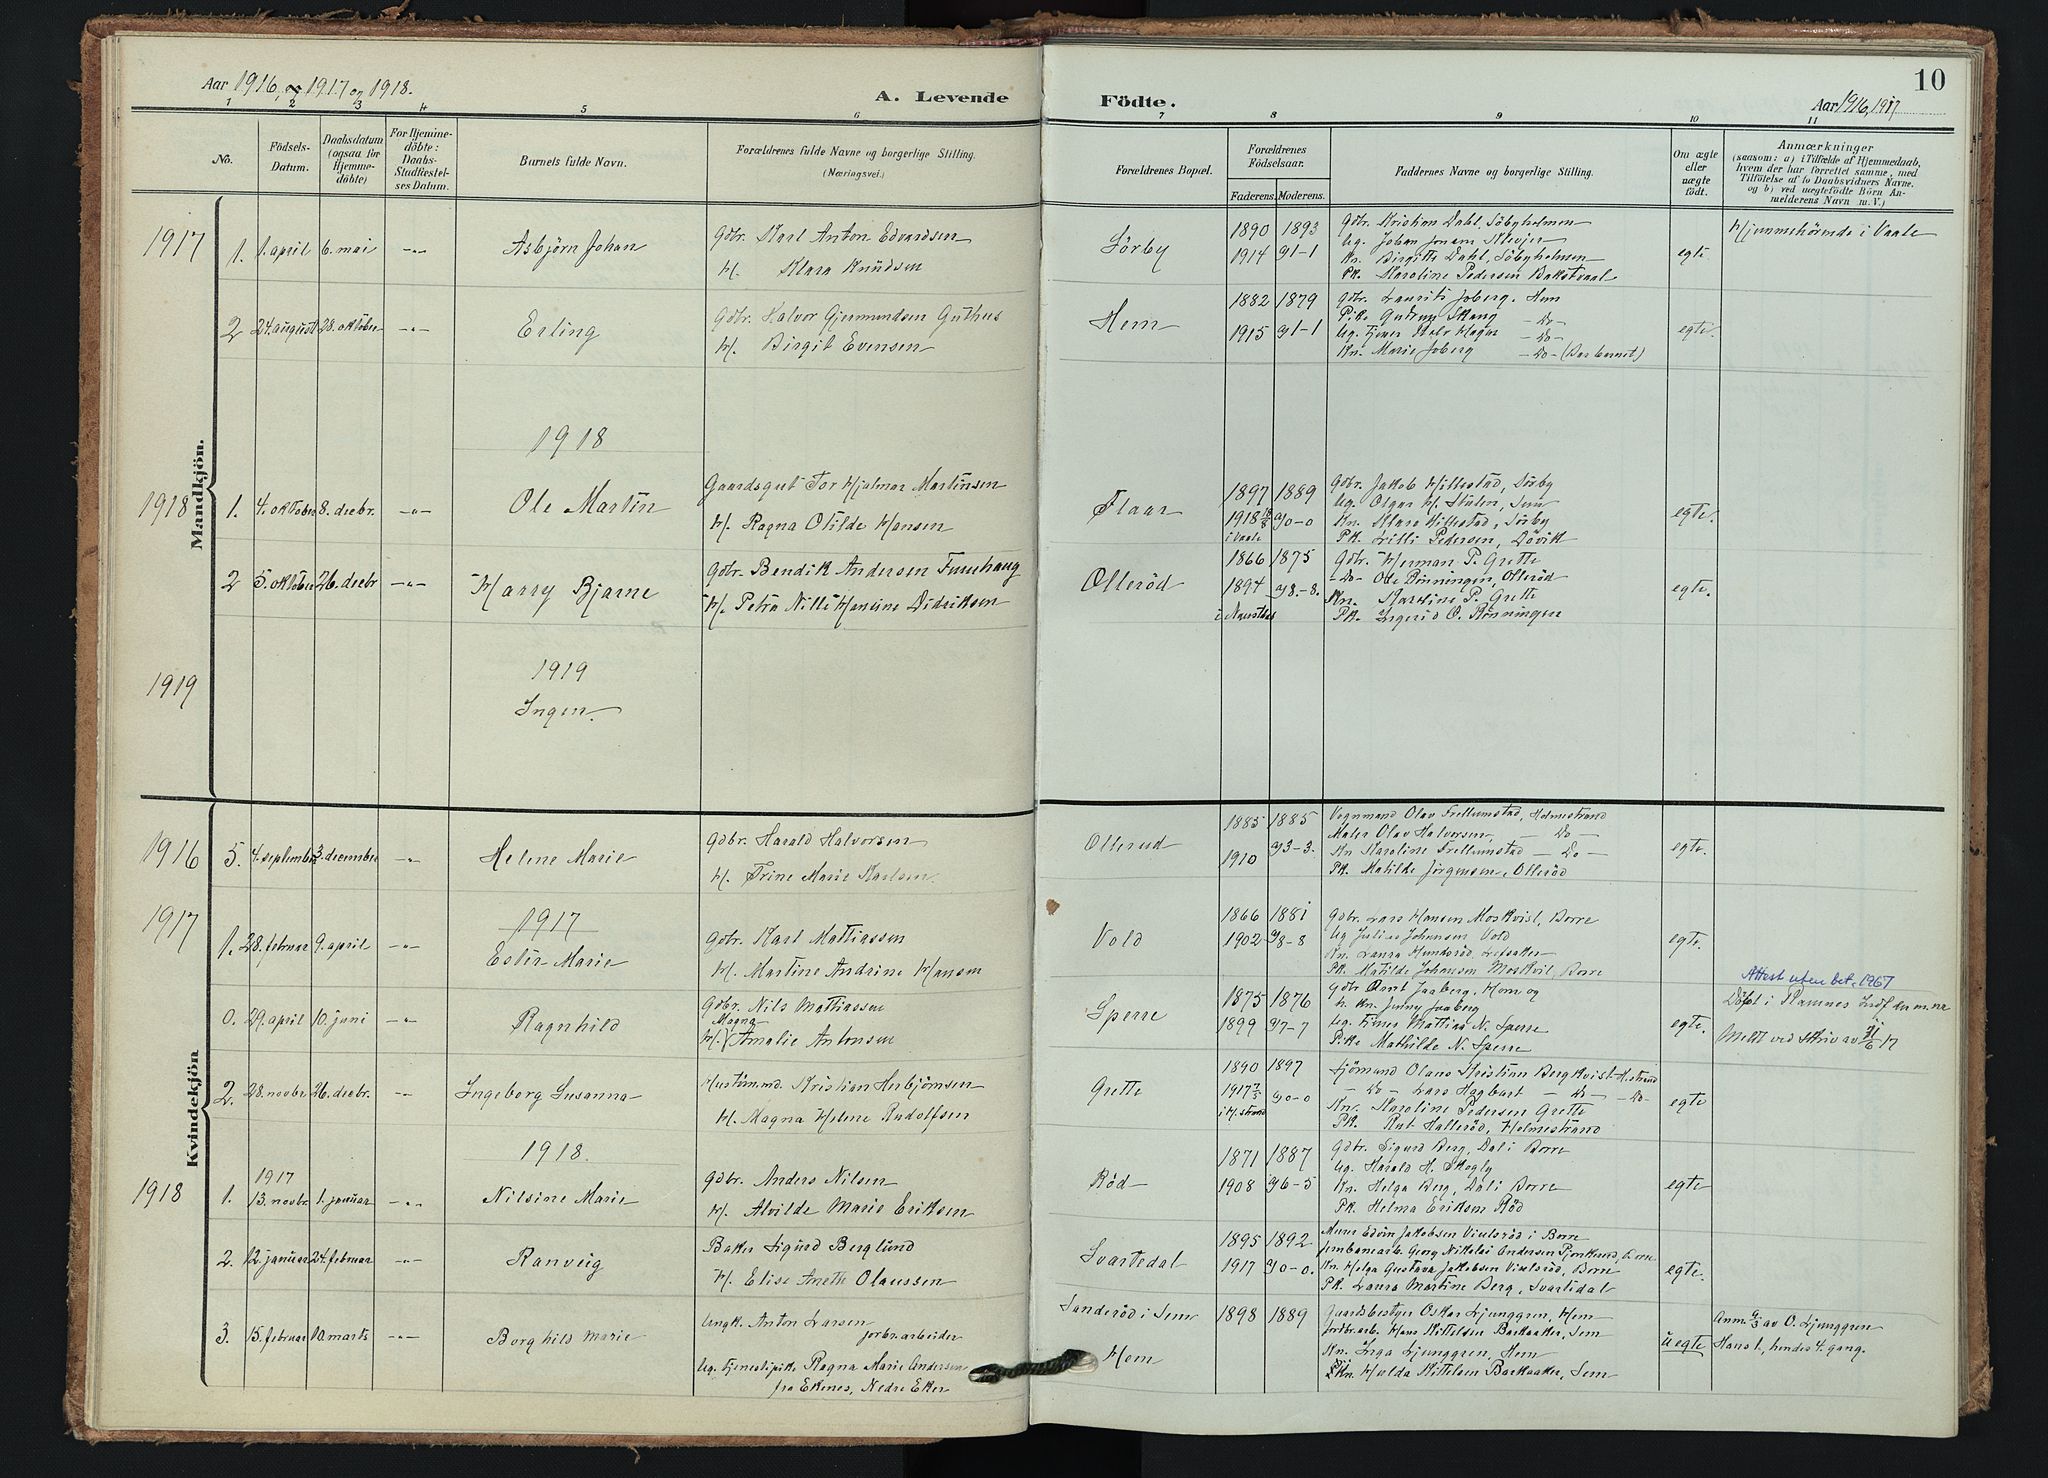 Aar 1916, og 1917 og 1918.
A. Levende
Födte.
Aar 1916, 1917
10
1 2 3 4 5 6 7 8 9 10 11
No.
Födsels-Datum.
Daabsdatum (ogsaa för Hjemme-döbte)
For Hjemme-döbte: Daabs-Stadfæstel-ses Datum.
Barnets fulde Navn.
Forældrenes fulde Navne og borgerlige Stilling.
(Næringsvei.)
Forældrenes Bopæl.
Forældrenes Födselsaar.
Faderens. Moderens.
Faddernes Navne og borgerlige Stilling.
Om ægte eller uægte födt.
Anmærkninger
(saasom: a) i Tilfælde af Hjemmedaab,
hvem der har forrettet samme, med
Tilföielse af to Daabsvidners Navne.
og b) ved uægtefödte Börn An-
melderens Navn m. V.)
Mandkjön.
1917
1. 1. april 6. mai -"- Asbjörn Johan
Gdbr. Karl Anton Edvardsen
H. Klara Knudsen
Sörby
1890 1893
1914 g 1-1
Gdbr. Kristian Dahl, Söbyholmen
Ug. Johan
Kn. Birgitte Dahl, Söbyholmen
Pk. Karoline Pedersen
egte
Hjemmehörende i Vaale
2 24. august 28. oktober -"- Erling
Gdbr. Halvor Gjermundsen Guthus
H. Birgit Evensen
Hem
1882 1879
1915 g 1-1
Gdbr. Laurits Joberg, Hem
Pike Gudrun Skaug -Do-
Ug. -Do-
Kn. Marie Joberg -Do- (Bar barnet)
egte.
1918
1918
1. 4. oktober 8. decbr. -"- Ole Martin
Gaardsgut Tor Hjalmar Martinsen
H. Ragna Otilde Hansen
Flaar
1897 1889
1918 g 0-0
i Vaale
Gdbr. Jakob Hillestad, Sörby
Ug. Oscar H. Stulen, Sem
Kn. Klara Hillestad, Sörby
Pk. Lilli Pedersen, Dövik
egte.
2 5. oktober 26. decbr -"- Harry Bjarne
Gdbr. Bendik Andersen Furuhaug
H. Petra Nilli Hansine Didriksen
Olleröd
1866 1875
1894 g 8-8.
Gdbr. Herman P. Grette
-Do- Ole Rönningen, Olleröd
Kn. Karoline P. Grette
Pk. Ingerid O. Rönningen
egte.
1919
1919
Ingen.
Kvindekjön
1916
5. 4. september 3. december -"- Helene Marie
Gdbr. Harald Halvorsen
H. Trine Marie Karlsen.
Ollerud
1885 1885
1910 g 3-3.
Vognmand Olav Frellumstad, Holmestrand
Maler Olav Halvorsen, -Do-
Kn Karoline Frellumstad -Do-
Pk. Matilde Jörgensen, Olleröd
egte.
1917
1917
1. 28. februar 9. april -"- Ester Marie
Gdbr. Karl Mattiassen
H. Martine Andrine Hansen
Vold
1866 1881
1902 g 8-8
Gdbr. Lars Hansen Moskvist, Borre
Ug Julius Johansen Vold
Kn. Laura
Pk. Matilde Johansen Moskvil, Borre
egte.
Attest uten bet. 1967
0. 29. april 10. juni -"- Ragnhild
Gdbr. Nils Mattiassen
Magna
H. Amalie Antonsen
Sperre
1875 1876
1899 g 7-7
Gdbr Arnt Jaaberg, Hem og
h. Kn. Jenny Jaaberg
Ug. Einar Mattias N. Sperre
Pike Mathilde N. Sperre
egte.
Döpt i Ramnes
Meldt ved
2. 28. novbr 26. decbr. -"- Ingeborg Susanna
Hustömmd. Kristian Herbjörnsen
H. Magna Helene Rudolfsen
Grette
1890 1897
1917 g 0-0
i H.strand
Sjömand Olaus Kristian Bergkvist H.strand
-Do- Lars Hagbart -Do- -Do-
Kn. Karoline Pedersen Grette
Pk. Rut Halleröd, Holmestrand
egte
1918.
1918
1917
1. 13. novbr. 1. januar -"- Nilsine Marie
Gdbr. Anders Nilsen
H. Alvilde Marie Eriksen
Röd
1871 1887
1908 g 6-5
Gdbr. Sigurd Berg, Dal i Borre
Ug. Harald H. Skogly
Kn. Helga Berg, Dal i Borre
Pk. Helma Eriksen Röd
egte
2. 12. januar 24. februar -"- Ranveig
Baker Sigurd Berglund
H. Elise Anette Olaussen
Svartedal
1895 1892
1917 g 0-0.
Murer Edvin Jakobsen Vivelsröd i Borre
Jernbanearb. Georg Nikolai Andersen Borre
Kn. Helga Gustava Jakobsen Vivelsröd, Borre
Pk. Laura Martine Berg, Svartedal
egte.
3. 15. februar 10. marts -"- Borghild Marie
Ungk. Anton Larsen
jorbr.arbeider
Ug. Tjenestepike Ragna Marie Andersen
fra Ekenes, Nedre Eker
Sanderöd i Sem
Hem
1898 1889
Gaardsbestyr Oskar Ljunggren, Hem
Jordbr.arb. Hans Kittelsen Backaaker, Sem
Kn. Inga Ljunggren, Hem
Kn. Hulda Kittelsen Backaaker, Sem
uegte
Anm. 9/3 av O. Ljunggren
Hans 1, hendes 4. gang.